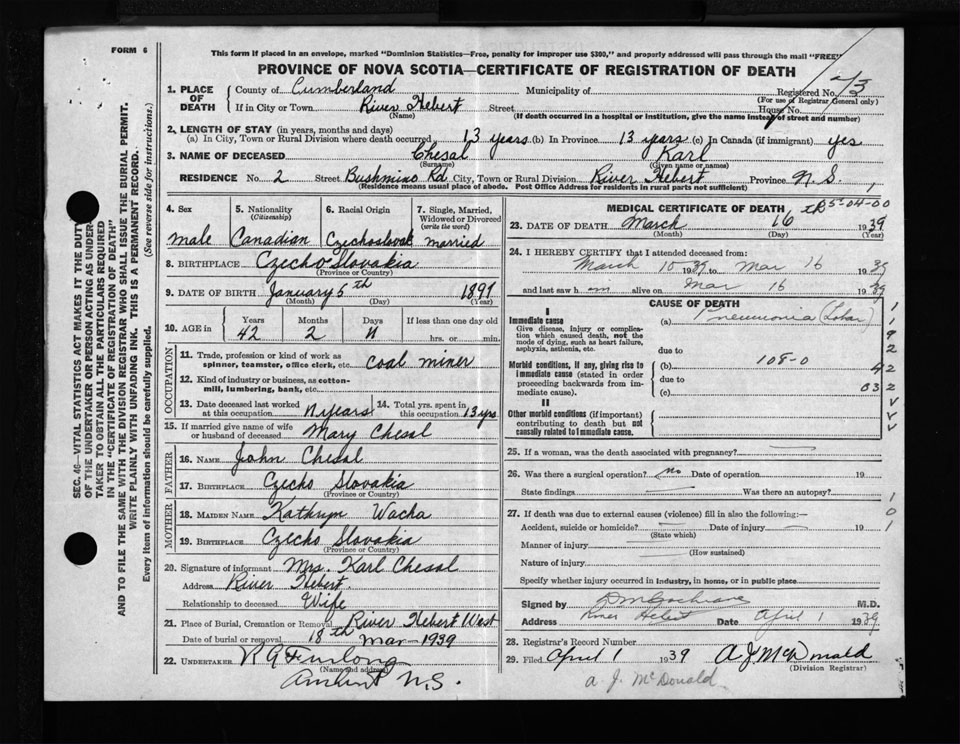 FORM 6
This form if placed in an envelope, marked "Dominion Statistics—Free, penalty for improper use $300," and properly addressed will pass through the mail "FREE"
PROVINCE OF NOVA SCOTIA—CERTIFICATE OF REGISTRATION OF DEATH
1. PLACE OF DEATH
County of Cumberland Municipality of Registered No.
(For use of Registrar General only)
If in City or Town River Hebert Street House No.
(Name) (If death occurred in a hospital or institution, give the name instead of street and number)
2. LENGTH OF STAY (in years, months and days)
(a) In City, Town or Rural Division where death occurred 13 years (b) In Province 13 years (c) In Canada (if immigrant) yes
3. NAME OF DECEASED Chesal Karl
(Surname) (Given name or names)
RESIDENCE No. 2 Street Bushmino Rd City, Town or Rural Division River Hebert Province N.S.
(Residence means usual place of abode. Post Office Address for residents in rural parts not sufficient)
4. Sex
male
5. Nationality (Citizenship)
Canadian
6. Racial Origin
Czechoslovak
7. Single, Married, Widowed or Divorced (write the word)
married
8. BIRTHPLACE Czecho Slovakia
(Province or Country)
9. DATE OF BIRTH January 5th 1897
(Month) (Day) (Year)
10. AGE in Years Months Days If less than one day old
42 2 11 hrs. or min.
OCCUPATION
11. Trade, profession or kind of work as spinner, teamster, office clerk, etc. coal miner
12. Kind of industry or business, as cotton-mill, lumbering, bank, etc.
13. Date deceased last worked at this occupation 11 years
14. Total yrs. spent in this occupation 13 yrs
15. If married give name of wife or husband of deceased Mary Chesal
FATHER
16. NAME John Chesal
17. BIRTHPLACE Czecho Slovakia
(Province or Country)
MOTHER
18. MAIDEN NAME Kathryn Wacha
19. BIRTHPLACE Czecho Slovakia
(Province or Country)
20. Signature of informant Mrs. Karl Chesal
Address River Hebert.
Relationship to deceased Wife
21. Place of Burial, Cremation or Removal River Hebert West
Date of burial or removal 18th Mar-1939
22. UNDERTAKER R G Furlong
(Name and address)
Amherst N.S.
MEDICAL CERTIFICATE OF DEATH
5-04-00
23. DATE OF DEATH March 16 1939
(Month) (Day) (Year)
24. I HEREBY CERTIFY that I attended deceased from:
March 10 1939 to Mar 16 1939
and last saw him alive on Mar 16 1939
CAUSE OF DEATH
I
Immediate cause
Give disease, injury or complication which caused death, not the mode of dying, such as heart failure, asphyxia, asthenia, etc.
(a) Pneumonia (Lobar)
due to
108-0
Morbid conditions, if any, giving rise to immediate cause (stated in order proceeding backwards from immediate cause).
(b)
due to
(c)
II
Other morbid conditions (if important) contributing to death but not causally related to immediate cause.
25. If a woman, was the death associated with pregnancy?
26. Was there a surgical operation? no Date of operation 19
State findings Was there an autopsy?
27. If death was due to external causes (violence) fill in also the following:—
Accident, suicide or homicide? Date of injury 19
(State which)
Manner of injury
(How sustained)
Nature of injury
Specify whether injury occurred in industry, in home, or in public place
Signed by D M Cochrane M.D.
Address River Hebert Date April 1 1939
28. Registrar's Record Number
29. Filed April 1 1939 A J McDonald
(Division Registrar)
A. J. McDonald
SEC. 46—VITAL STATISTICS ACT MAKES IT THE DUTY
OF THE UNDERTAKER OR PERSON ACTING AS UNDER-
TAKER TO OBTAIN ALL THE PARTICULARS REQUIRED
IN THE "CERTIFICATE OF REGISTRATION OF DEATH"
AND TO FILE THE SAME WITH THE DIVISION REGISTRAR WHO SHALL ISSUE THE BURIAL PERMIT.
WRITE PLAINLY WITH UNFADING INK. THIS IS A PERMANENT RECORD.
Every item of information should be carefully supplied. (See reverse side for instructions.)